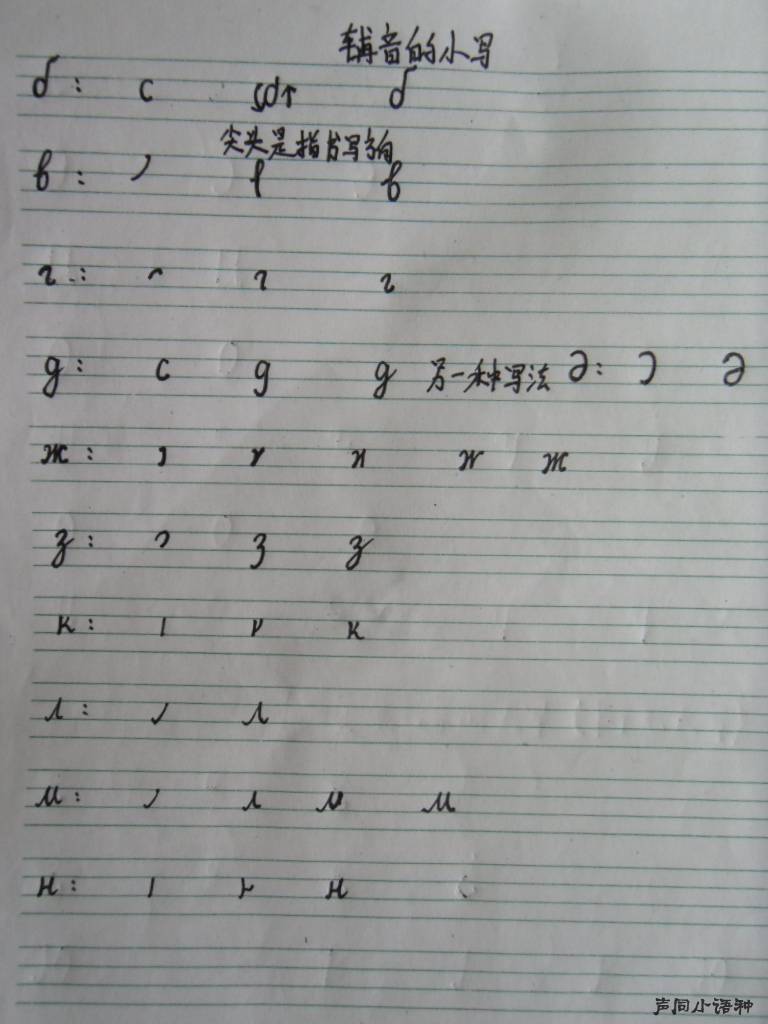 辅音的小写
б: c ↑ б
尖头是指书写方向
в: в
г: г г
д: c g д 另一种写法 ∂: ∂
ж: ж
з: з з
к: к
л: л
м: л м
н: н
声同小语种